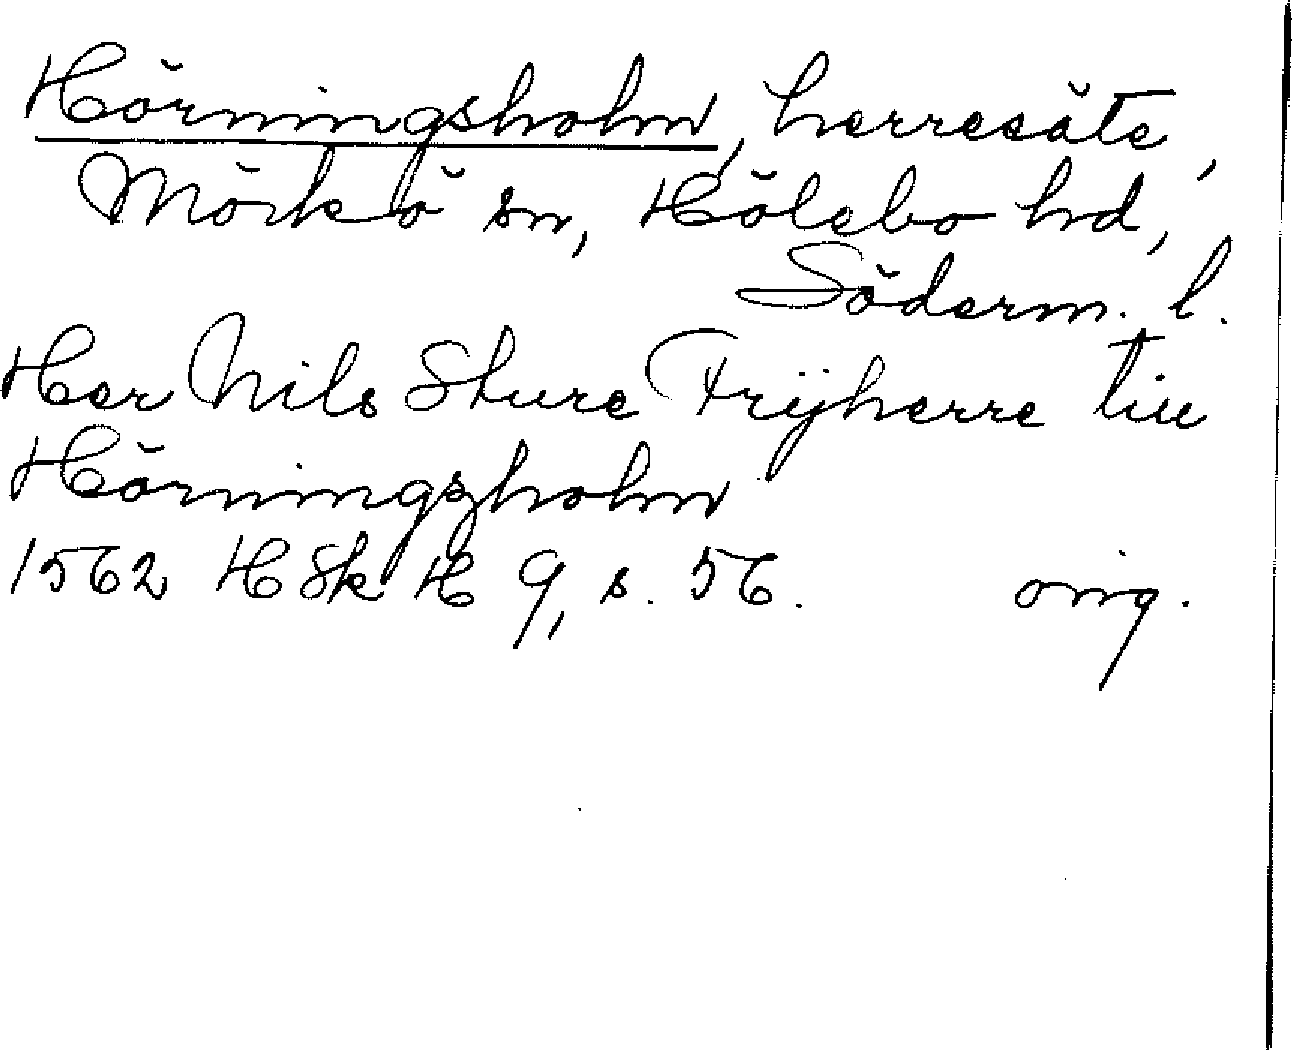 Hörningsholm, herresäte,
Mörkö sn, Hölebo hd,
Söderm. l.
Her Nils Sture Frijherre till
Hörningzholm
1562 HSk H 9, s. 56. orig.